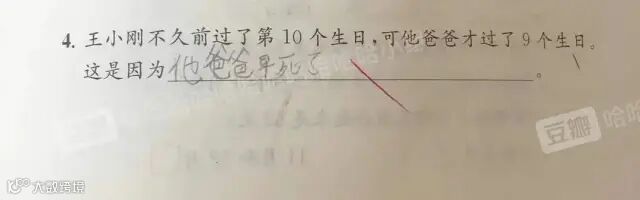 4. 王小刚不久前过了第 10 个生日，可他爸爸才过了 9 个生日。
这是因为他爸爸早死了。
豆瓣
大数跨境